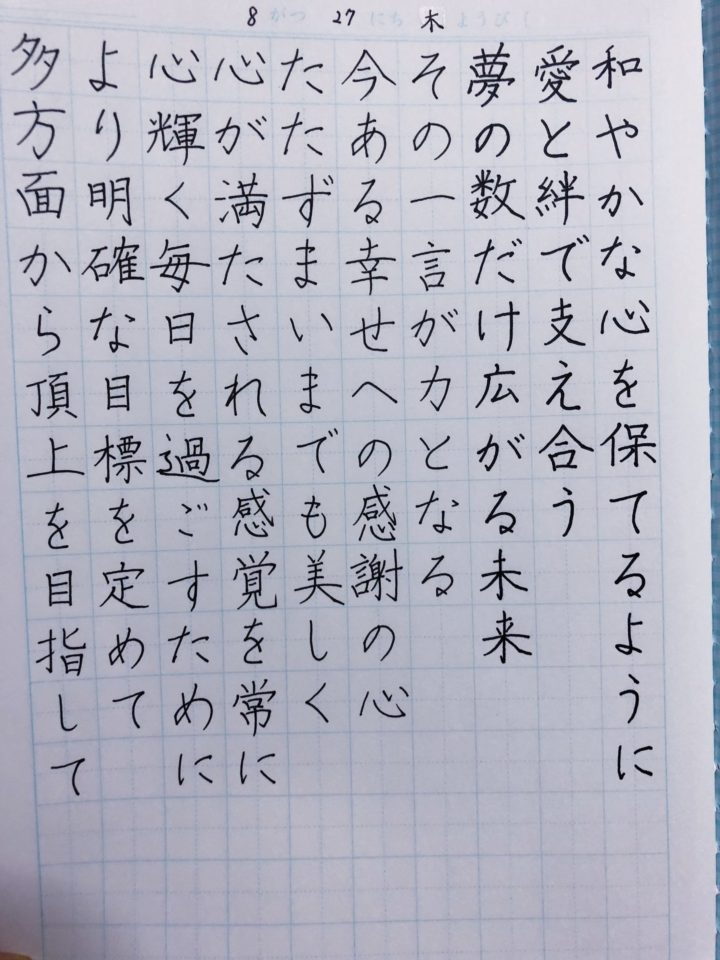 8がつ 27にち 木ようび（
和やかな心を保てるように
愛と絆で支え合う
夢の数だけ広がる未来
その一言が力となる
今ある幸せへの感謝の心
たたずまいまでも美しく
心が満たされる感覚を常に
心輝く毎日を過ごすために
より明確な目標を定めて
多方面から頂上を目指して